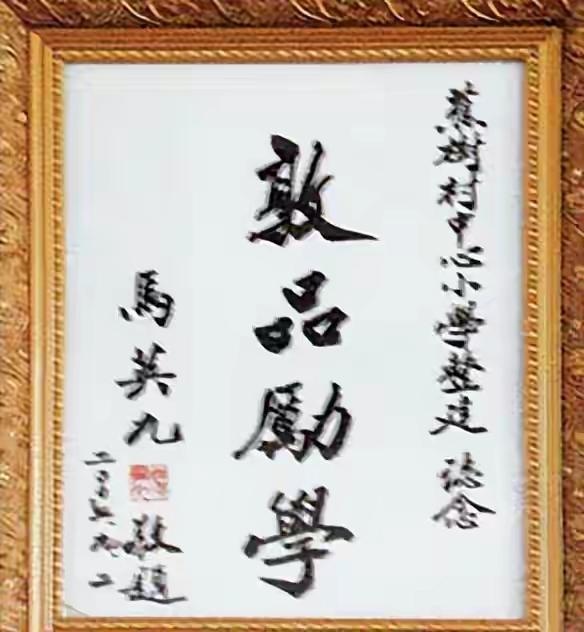 蕉樹村中心小學整建 誌念
敦品勵學
馬英九 敬題
二〇〇五 九 二